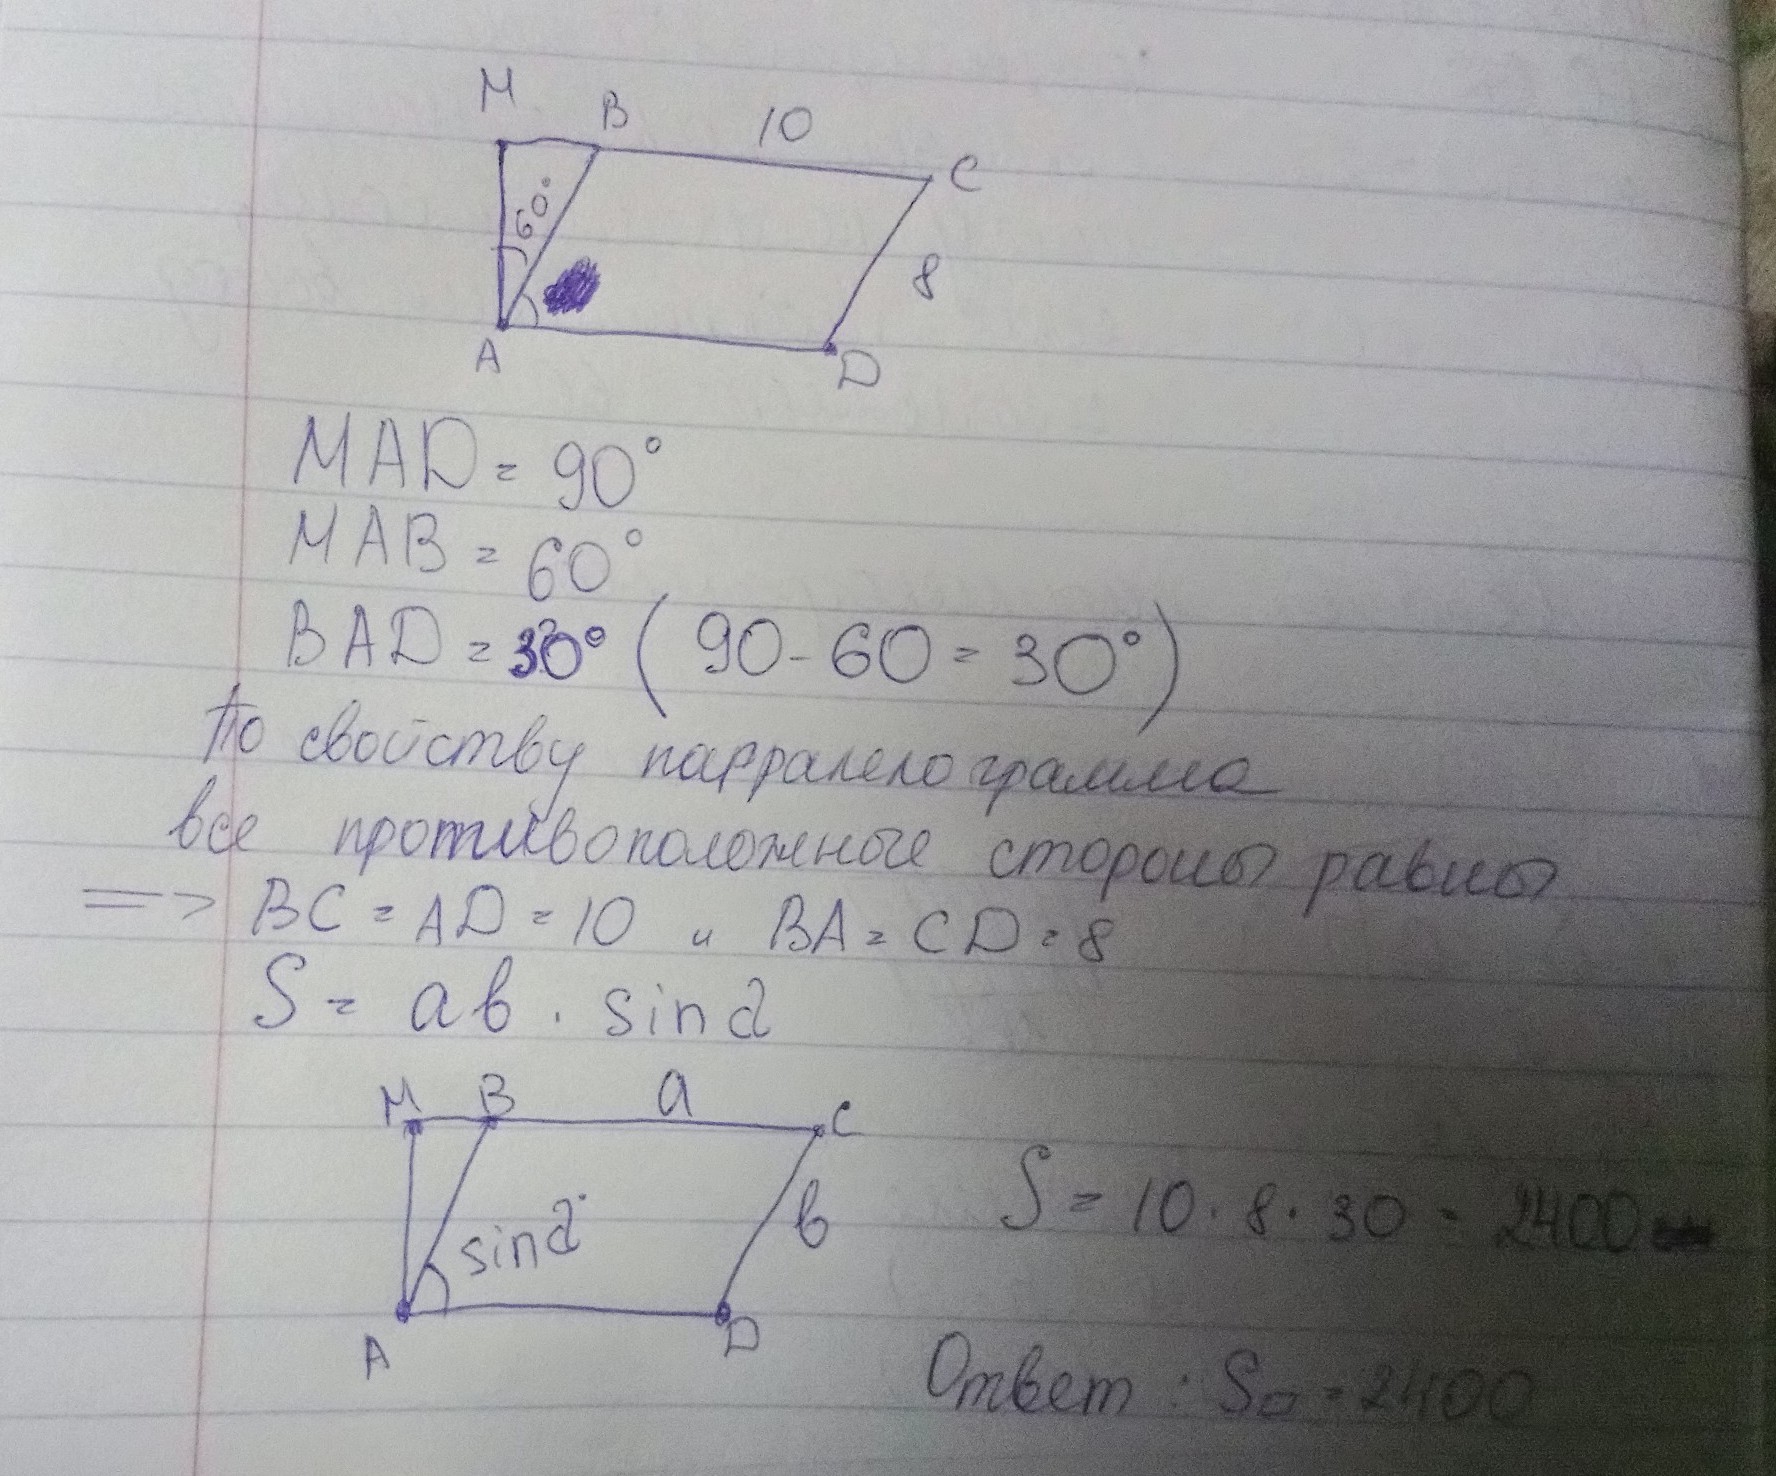 M
B
10
C
60°
8
A
D
MAD = 90°
MAB = 60°
BAD = 30° ( 90 - 60 = 30° )
По свойству парралелограмма
все противоположные стороны равны
=> BC = AD = 10 и BA = CD = 8
S = ab · sinα
M
B
a
C
sinα
b
S = 10 · 8 · 30 = 2400
A
D
Ответ : S▱ = 2400